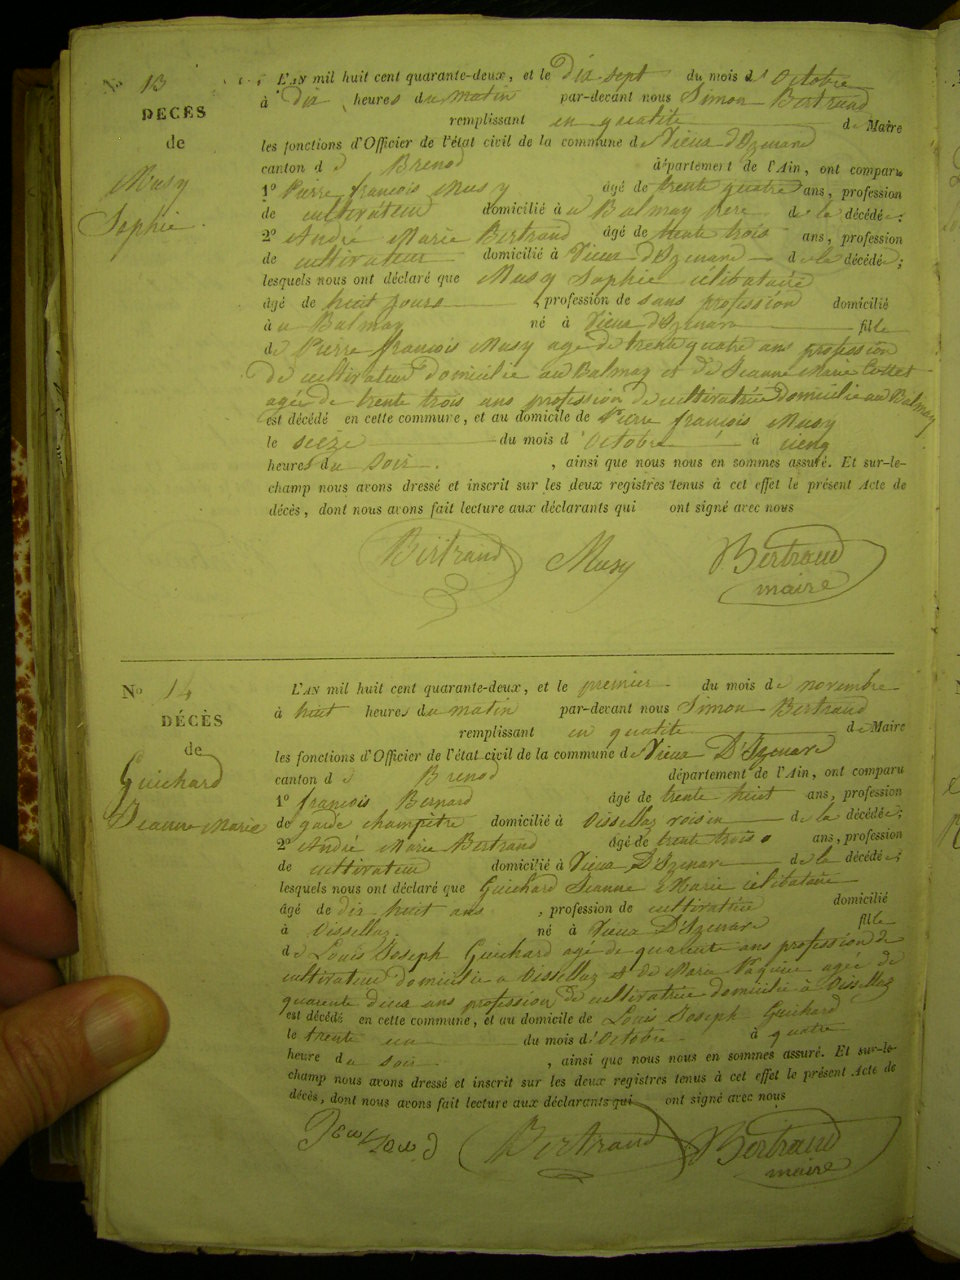 No 13
L'AN mil huit cent quarante-deux, et le dix sept du mois d'Octobre
à Dix heures du matin par-devant nous Simon Bertrand
remplissant en qualité de Maire
DECÈS
de
Musy
Sophie
les fonctions d'Officier de l'état civil de la commune de Vieux d'Izenave
canton d Brenod département de l'Ain, ont comparu
1o Pierre françois Musy âgé de trente quatre ans, profession
de cultivateur domicilié à u Balmay père de la décédée;
2o André Marie Bertrand âgé de trente trois ans, profession
de cultivateur domicilié à Vieux d'Izenave de la décédée;
lesquels nous ont déclaré que Musy Sophie célibataire
âgé de huit jours, profession de sans profession domicilié
à u Balmay né à Vieux d'Izenave fille
de Pierre françois Musy agé de trente quatre ans profession
de cultivateur domicilié au Balmay et de Jeanne Marie
agée de trente trois ans profession de cultivatrice domicilié au Balmay
est décédé en cette commune, et au domicile de Pierre françois Musy
le seize du mois d'Octobre à cinq
heures du soir, ainsi que nous nous en sommes assuré. Et sur-le-
champ nous avons dressé et inscrit sur les deux registres tenus à cet effet le présent Acte de
décès, dont nous avons fait lecture aux déclarants qui ont signé avec nous
Bertrand Musy Bertrand
maire
No 14
L'AN mil huit cent quarante-deux, et le premier du mois de novembre
à huit heures du matin par-devant nous Simon Bertrand
remplissant en qualité de Maire
DÉCÈS
de
Guichard
Jeanne Marie
les fonctions d'Officier de l'état civil de la commune de Vieux D'Izenave
canton d Brenod département de l'Ain, ont comparu
1o françois Bernard âgé de trente huit ans, profession
de garde champêtre domicilié à Oissellaz voisin de la décédée;
2o André Marie Bertrand âgé de trente trois ans, profession
de cultivateur domicilié à Vieux D'Izenave de la décédée;
lesquels nous ont déclaré que Guichard Jeanne Marie célibataire
âgé de dix huit ans, profession de cultivatrice domicilié
à Oissellaz né à Vieux D'Izenave fille
de Louis Joseph Guichard agé de quarente ans profession de
cultivateur domicilié a Oissellaz et de Marie agée de
quarente deux ans profession de cultivatrice domicilié à Oissellaz
est décédé en cette commune, et au domicile de Louis Joseph Guichard
le trente un du mois d'Octobre à quatre
heure du soir, ainsi que nous nous en sommes assuré. Et sur-le-
champ nous avons dressé et inscrit sur les deux registres tenus à cet effet le présent Acte de
décès, dont nous avons fait lecture aux déclarants qui ont signé avec nous
Bertrand Bertrand
maire